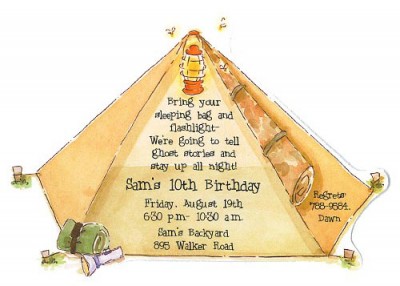 Bring your
sleeping bag and
flashlight-
We're going to tell
ghost stories and
stay up all night!
Sam's 10th Birthday
Friday, August 19th
6:30 pm- 10:30 am
Sam's Backyard
895 Walker Road
Regrets:
788-9584.
Dawn